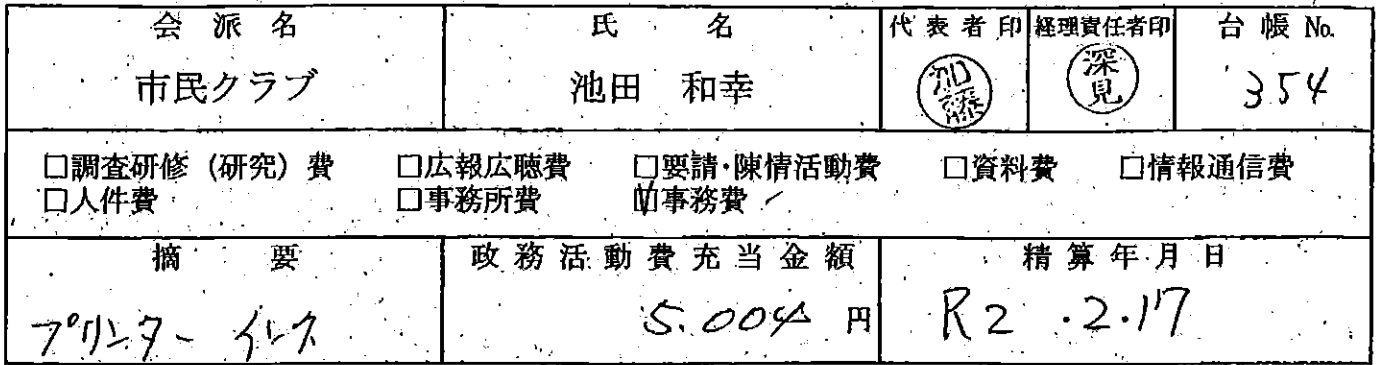 会派名 氏名 代表者印 経理責任者印 台帳 No.
市民クラブ 池田 和幸 加藤 深見 354
□調査研修（研究）費 □広報広聴費 □要請・陳情活動費 □資料費 □情報通信費
□人件費 □事務所費 ☑事務費
摘要 政務活動費充当金額 精算年月日
プリンターインク 5.004 円 R2.2.17